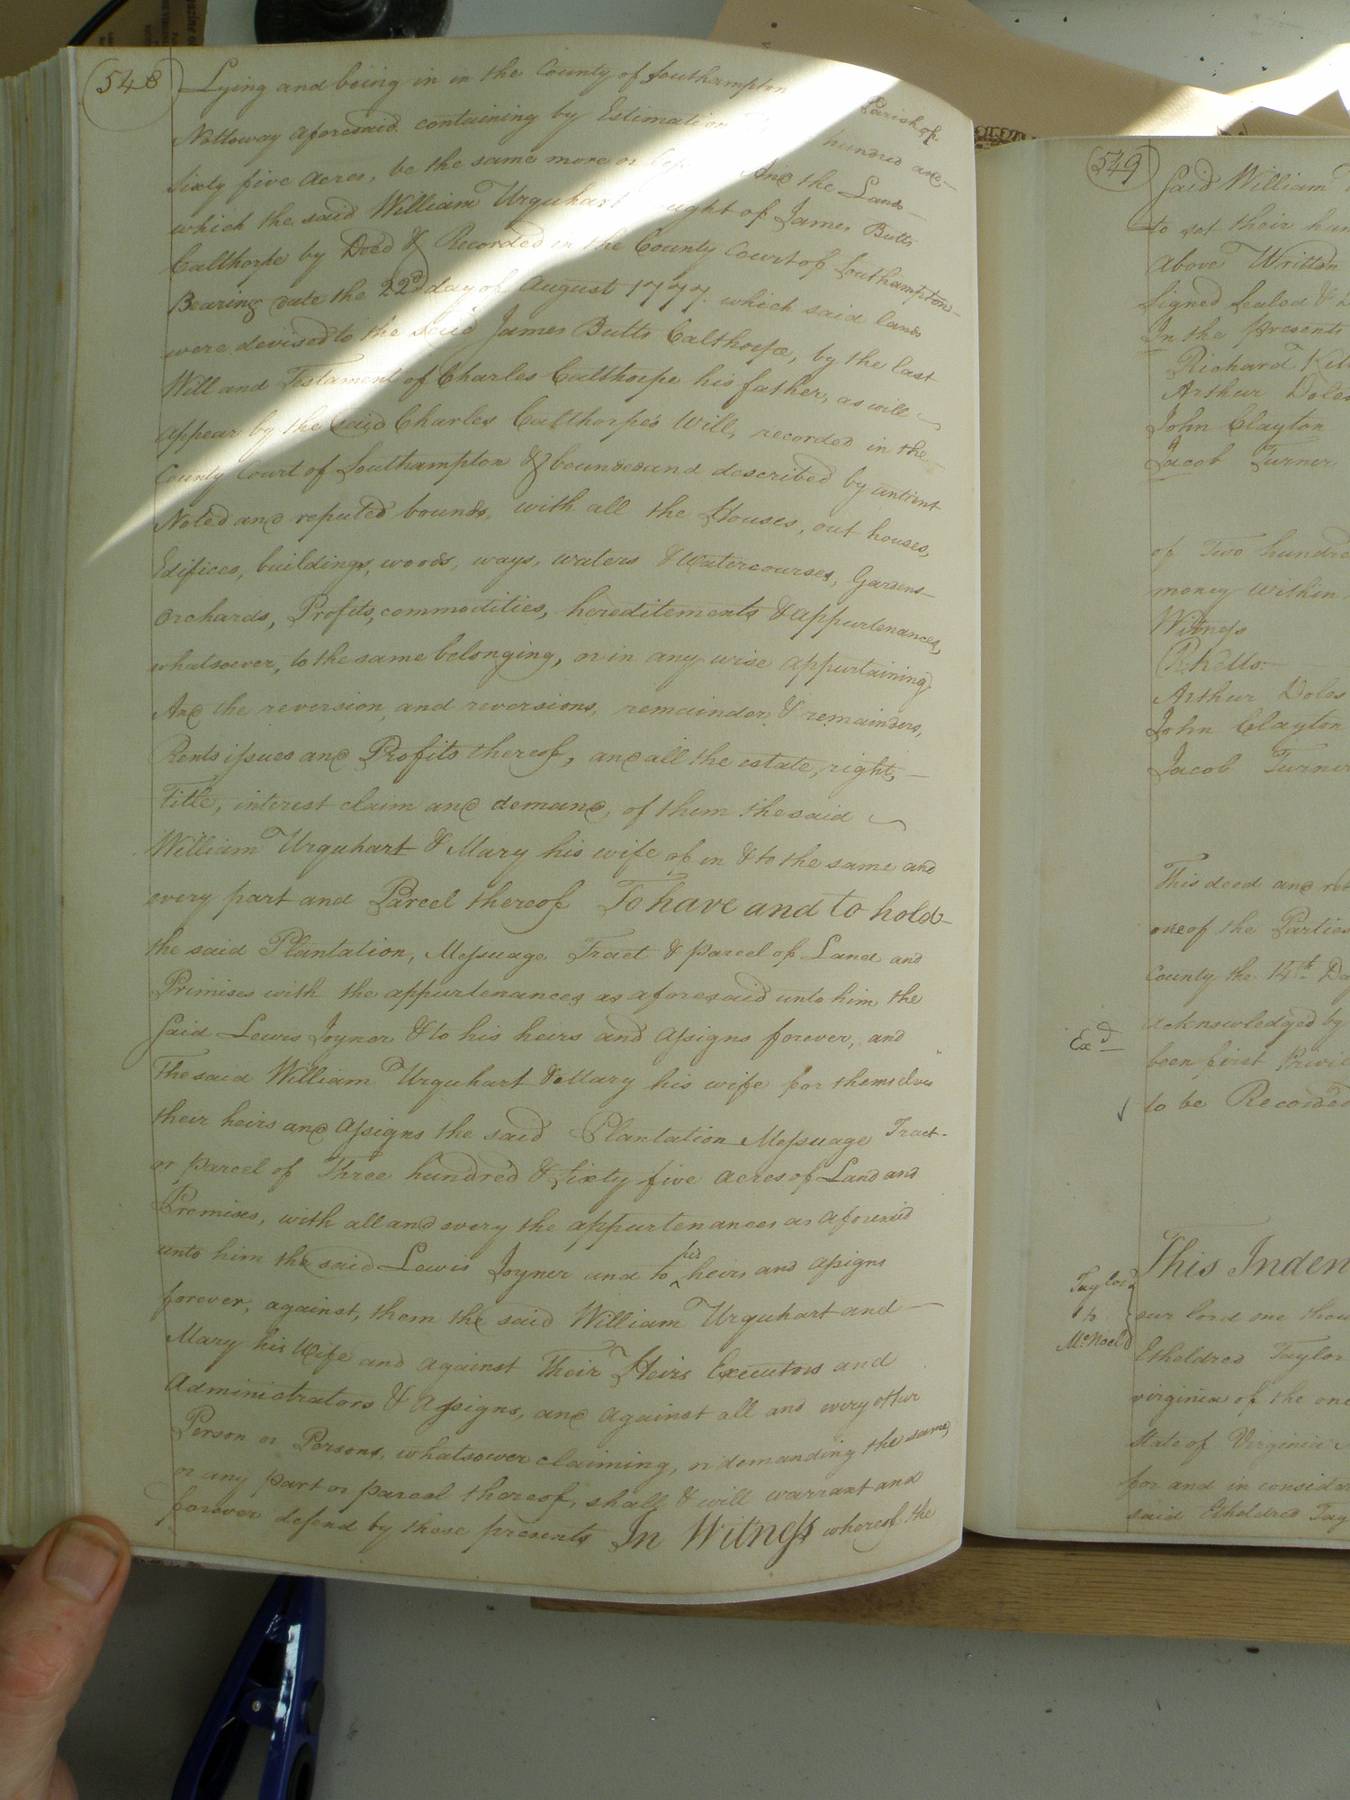 548
Lying and being in in the County of Southampton Parish of
Nottoway aforesaid containing by Estimation hundred and
Sixty five Acres, be the same more or less And the Land
which the said William Urquhart ought of James Butts
Calthorpe by Deed & Recorded in the County Court of Southampton
Bearing date the 22d day of August 1777. which said lands
were devised to the said James Butts Calthorpe, by the last
Will and Testament of Charles Calthorpe his father, as will
appear by the said Charles Calthorpe's Will, recorded in the
County Court of Southampton & bounded and described by antient
Noted and reputed bounds, with all the Houses, out houses,
Edifices, buildings, woods, ways, waters & Watercourses, Gardens
Orchards, Profits, commodities, hereditements & appurtenances,
whatsoever, to the same belonging, or in any wise appurtaining
And the reversion and reversions, remainder & remainders,
Rents issues and Profits thereof, and all the estate, right,
Title, interest claim and demand, of them the said
William Urquhart & Mary his wife of in & to the same and
every part and Parcel thereof To have and to hold
the said Plantation, Messuage Tract & parcel of Land and
Primises with the appurtenances as aforesaid unto him the
Said Lewis Joyner & to his heirs and assigns forever, and
The said William Urquhart & Mary his wife for themselves
their heirs and Assigns the said Plantation Messuage Tract
or parcel of Three hundred & Sixty five acres of Land and
Premises, with all and every the appurtenances as aforesaid
unto him the said Lewis Joyner and to his heirs and assigns
forever, against, them the said William Urquhart and
Mary his Wife and against Their Heirs Executors and
Administrators & Assigns, and against all and every other
Person or Persons, whatsoever claiming, or demanding the same,
or any part or parcel thereof, shall & will warrant and
forever defend by these presents In Witness whereof the
549
Said William
to set their
above Written
Signed Sealed &
In the Presents
Richard
Arthur Doles
John Clayton
Jacob Turner
of Two hundred
money within
Witness
R. Kello
Arthur Doles
John Clayton
Jacob Turner
This deed and
one of the Parties
County the 14th
acknowledged by
Exd
been first
to be Recorded
This Inden
Taylor
to
McNeel
our lord one thou
Etheldred Taylor
virginia of the one
State of Virginia
for and in consid
said Etheldred Tay